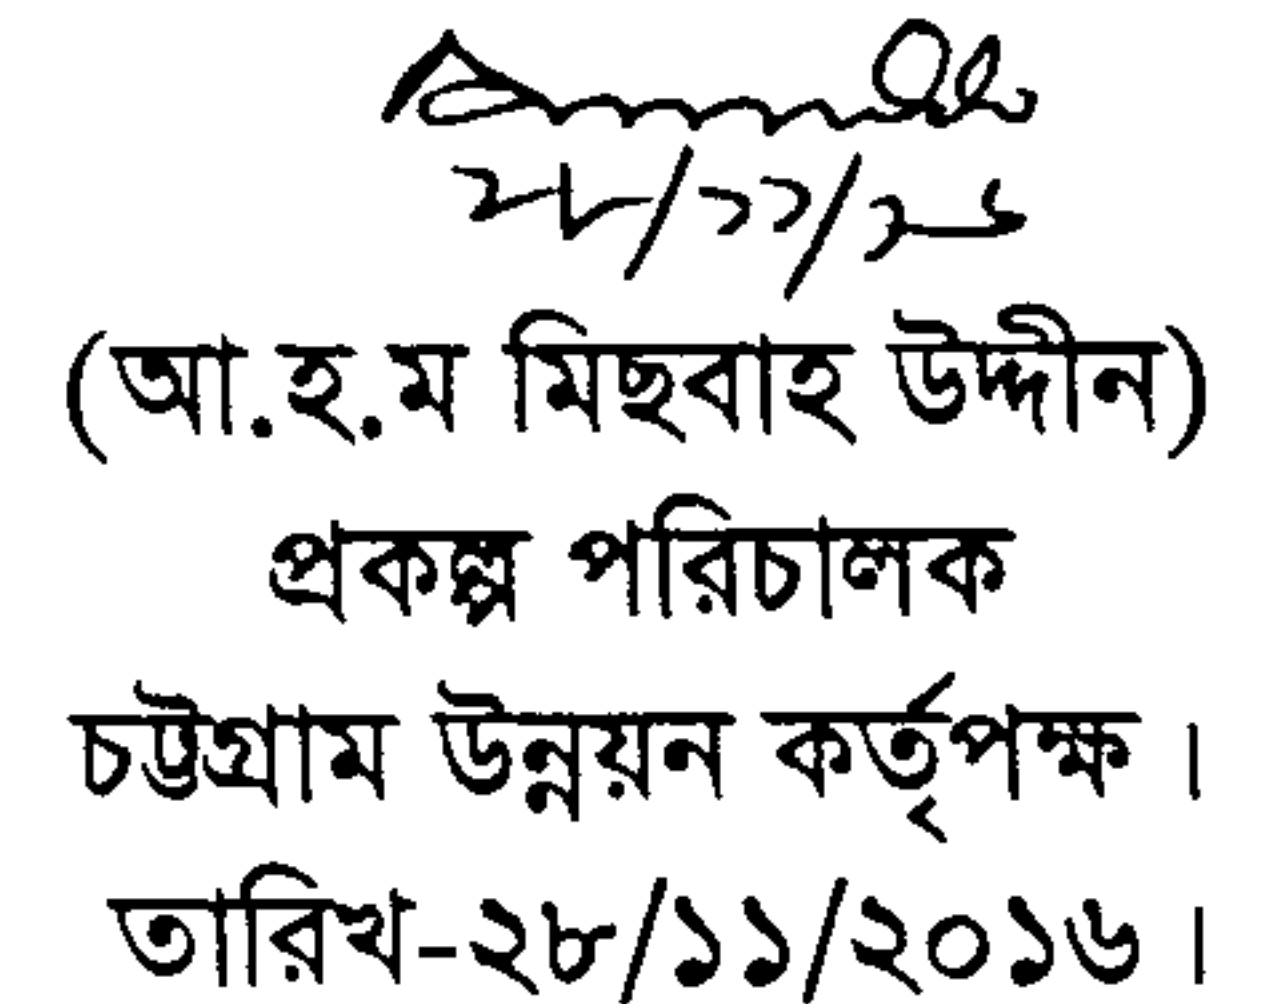 ২৮/১১/১৬
(আ.হ.ম মিছবাহ উদ্দীন)
প্রকল্প পরিচালক
চট্টগ্রাম উন্নয়ন কর্তৃপক্ষ।
তারিখ-২৮/১১/২০১৬।